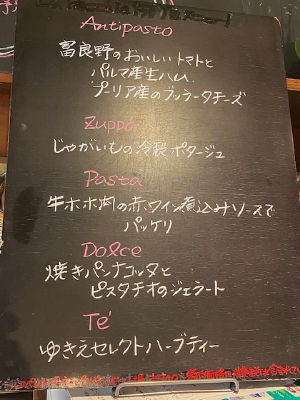 Antipasto
富良野のおいしいトマトと
パルマ産生ハム
プーリア産のブッラータチーズ
Zuppa
じゃがいもの冷製ポタージュ
Pasta
牛ホホ肉の赤ワイン煮込みソースで
パッケリ
Dolce
焼きパンナコッタと
ピスタチオのジェラート
Té
ゆきえセレクトハーブティー